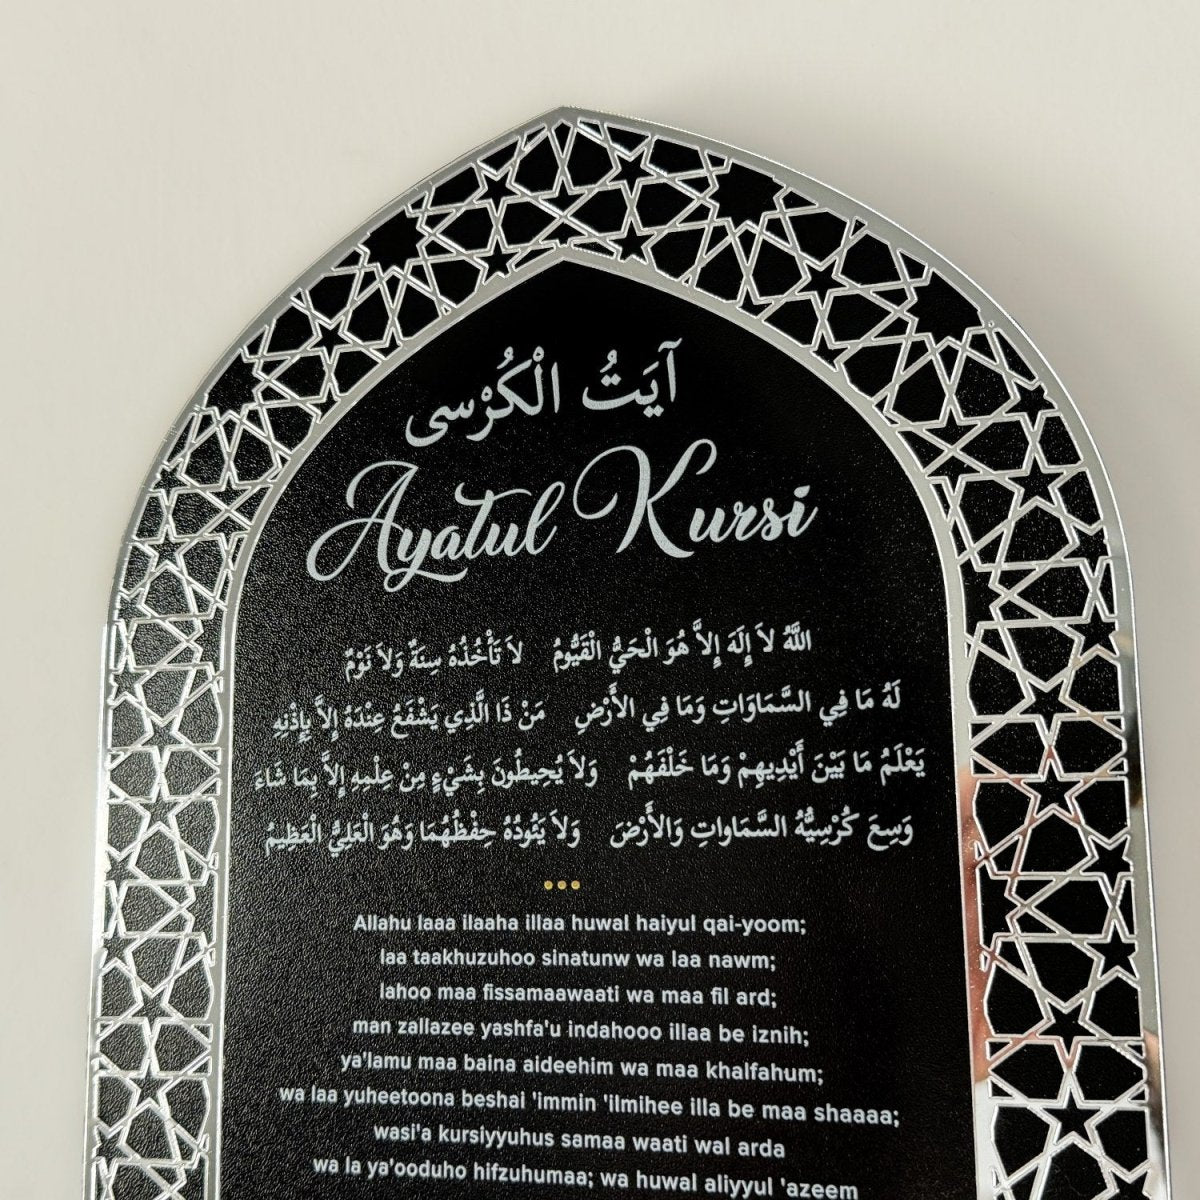 آيَتُ الْكُرْسى
Ayatul Kursi
اللَّهُ لاَ إِلَهَ إِلاَّ هُوَ الْحَيُّ الْقَيُّومُ لاَ تَأْخُذُهُ سِنَةٌ وَلاَ نَوْمٌ
لَهُ مَا فِي السَّمَاوَاتِ وَمَا فِي الأَرْضِ مَنْ ذَا الَّذِي يَشْفَعُ عِنْدَهُ إِلاَّ بِإِذْنِهِ
يَعْلَمُ مَا بَيْنَ أَيْدِيهِمْ وَمَا خَلْفَهُمْ وَلاَ يُحِيطُونَ بِشَيْءٍ مِنْ عِلْمِهِ إِلاَّ بِمَا شَاءَ
وَسِعَ كُرْسِيُّهُ السَّمَاواتِ وَالأَرْضَ وَلاَ يَئُودُهُ حِفْظُهُمَا وَهُوَ الْعَلِيُّ الْعَظِيمُ
Allahu laaa ilaaha illaa huwal haiyul qai-yoom;
laa taakhuzuhoo sinatunw wa laa nawm;
lahoo maa fissamaawaati wa maa fil ard;
man zallazee yashfa'u indahooo illaa be iznih;
ya'lamu maa baina aideehim wa maa khalfahum;
wa laa yuheetoona beshai 'immin 'ilmihee illa be maa shaaaa;
wasi'a kursiyyuhus samaa waati wal arda
wa la ya'ooduho hifzuhumaa; wa huwal aliyyul 'azeem